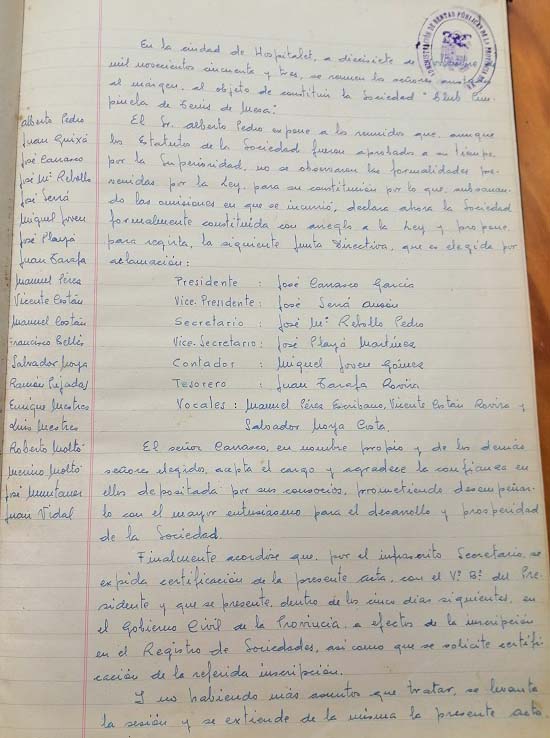 ADMINISTRACIÓN DE RENTAS PÚBLICAS DE LA PROVINCIA
En la ciudad de Hospitalet, a diecisiete de
mil novecientos cincuenta y tres, se reunen los señores
al márgen, al objeto de constituir la Sociedad "Club
de Tenis de Mesa".
El Sr. Alberto Pedro expone a los reunidos que, aunque
los Estatutos de la Sociedad fueron aprobados a su tiempo
por la Superioridad, no se observaron las formalidades pre-
venidas por la Ley, para su constitución por lo que, subsanan-
do las omisiones en que se incurrió, declara ahora la Sociedad
formalmente constituida con arreglo a la Ley y propone,
para regirla, la siguiente Junta Directiva, que es elegida por
aclamación:
Presidente : José Carrasco García
Vice-Presidente : José Serrá
Secretario : José Mª Rebollo Pedro
Vice-Secretario : José Playá Martínez
Contador : Miguel Joven Gómez
Tesorero : Juan Tarafa Rovira
Vocales : Manuel Pérez Escribano, Vicente Costán Rovira y
Salvador Moya Costa.
El señor Carrasco, en nombre propio y de los demás
señores elegidos, acepta el cargo y agradece la confianza en
ellos depositada por sus consocios, prometiendo desempeñar-
lo con el mayor entusiasmo para el desarrollo y prosperidad
de la Sociedad.
Finalmente acordóse que, por el infrascrito Secretario, se
expida certificación de la presente acta, con el Vº Bº del Pre-
sidente y que se presente, dentro de los cinco días siguientes, en
el Gobierno Civil de la Provincia, a efectos de la inscripción
en el Registro de Sociedades, así como que se solicite certifi-
cación de la referida inscripción.
Y no habiendo más asuntos que tratar, se levanta
la sesión y se extiende de la misma la presente acta
Alberto Pedro
Juan Guixá
José Carrasco
José Mª Rebollo
José Serrá
Miguel Joven
José Playá
Juan Tarafa
Manuel Pérez
Vicente Costán
Manuel Costán
Francisco Bellés
Salvador Moya
Ramón Pujadas
Enrique Mestres
Luis Mestres
Roberto Moltó
Merino Moltó
José Muntaner
Juan Vidal